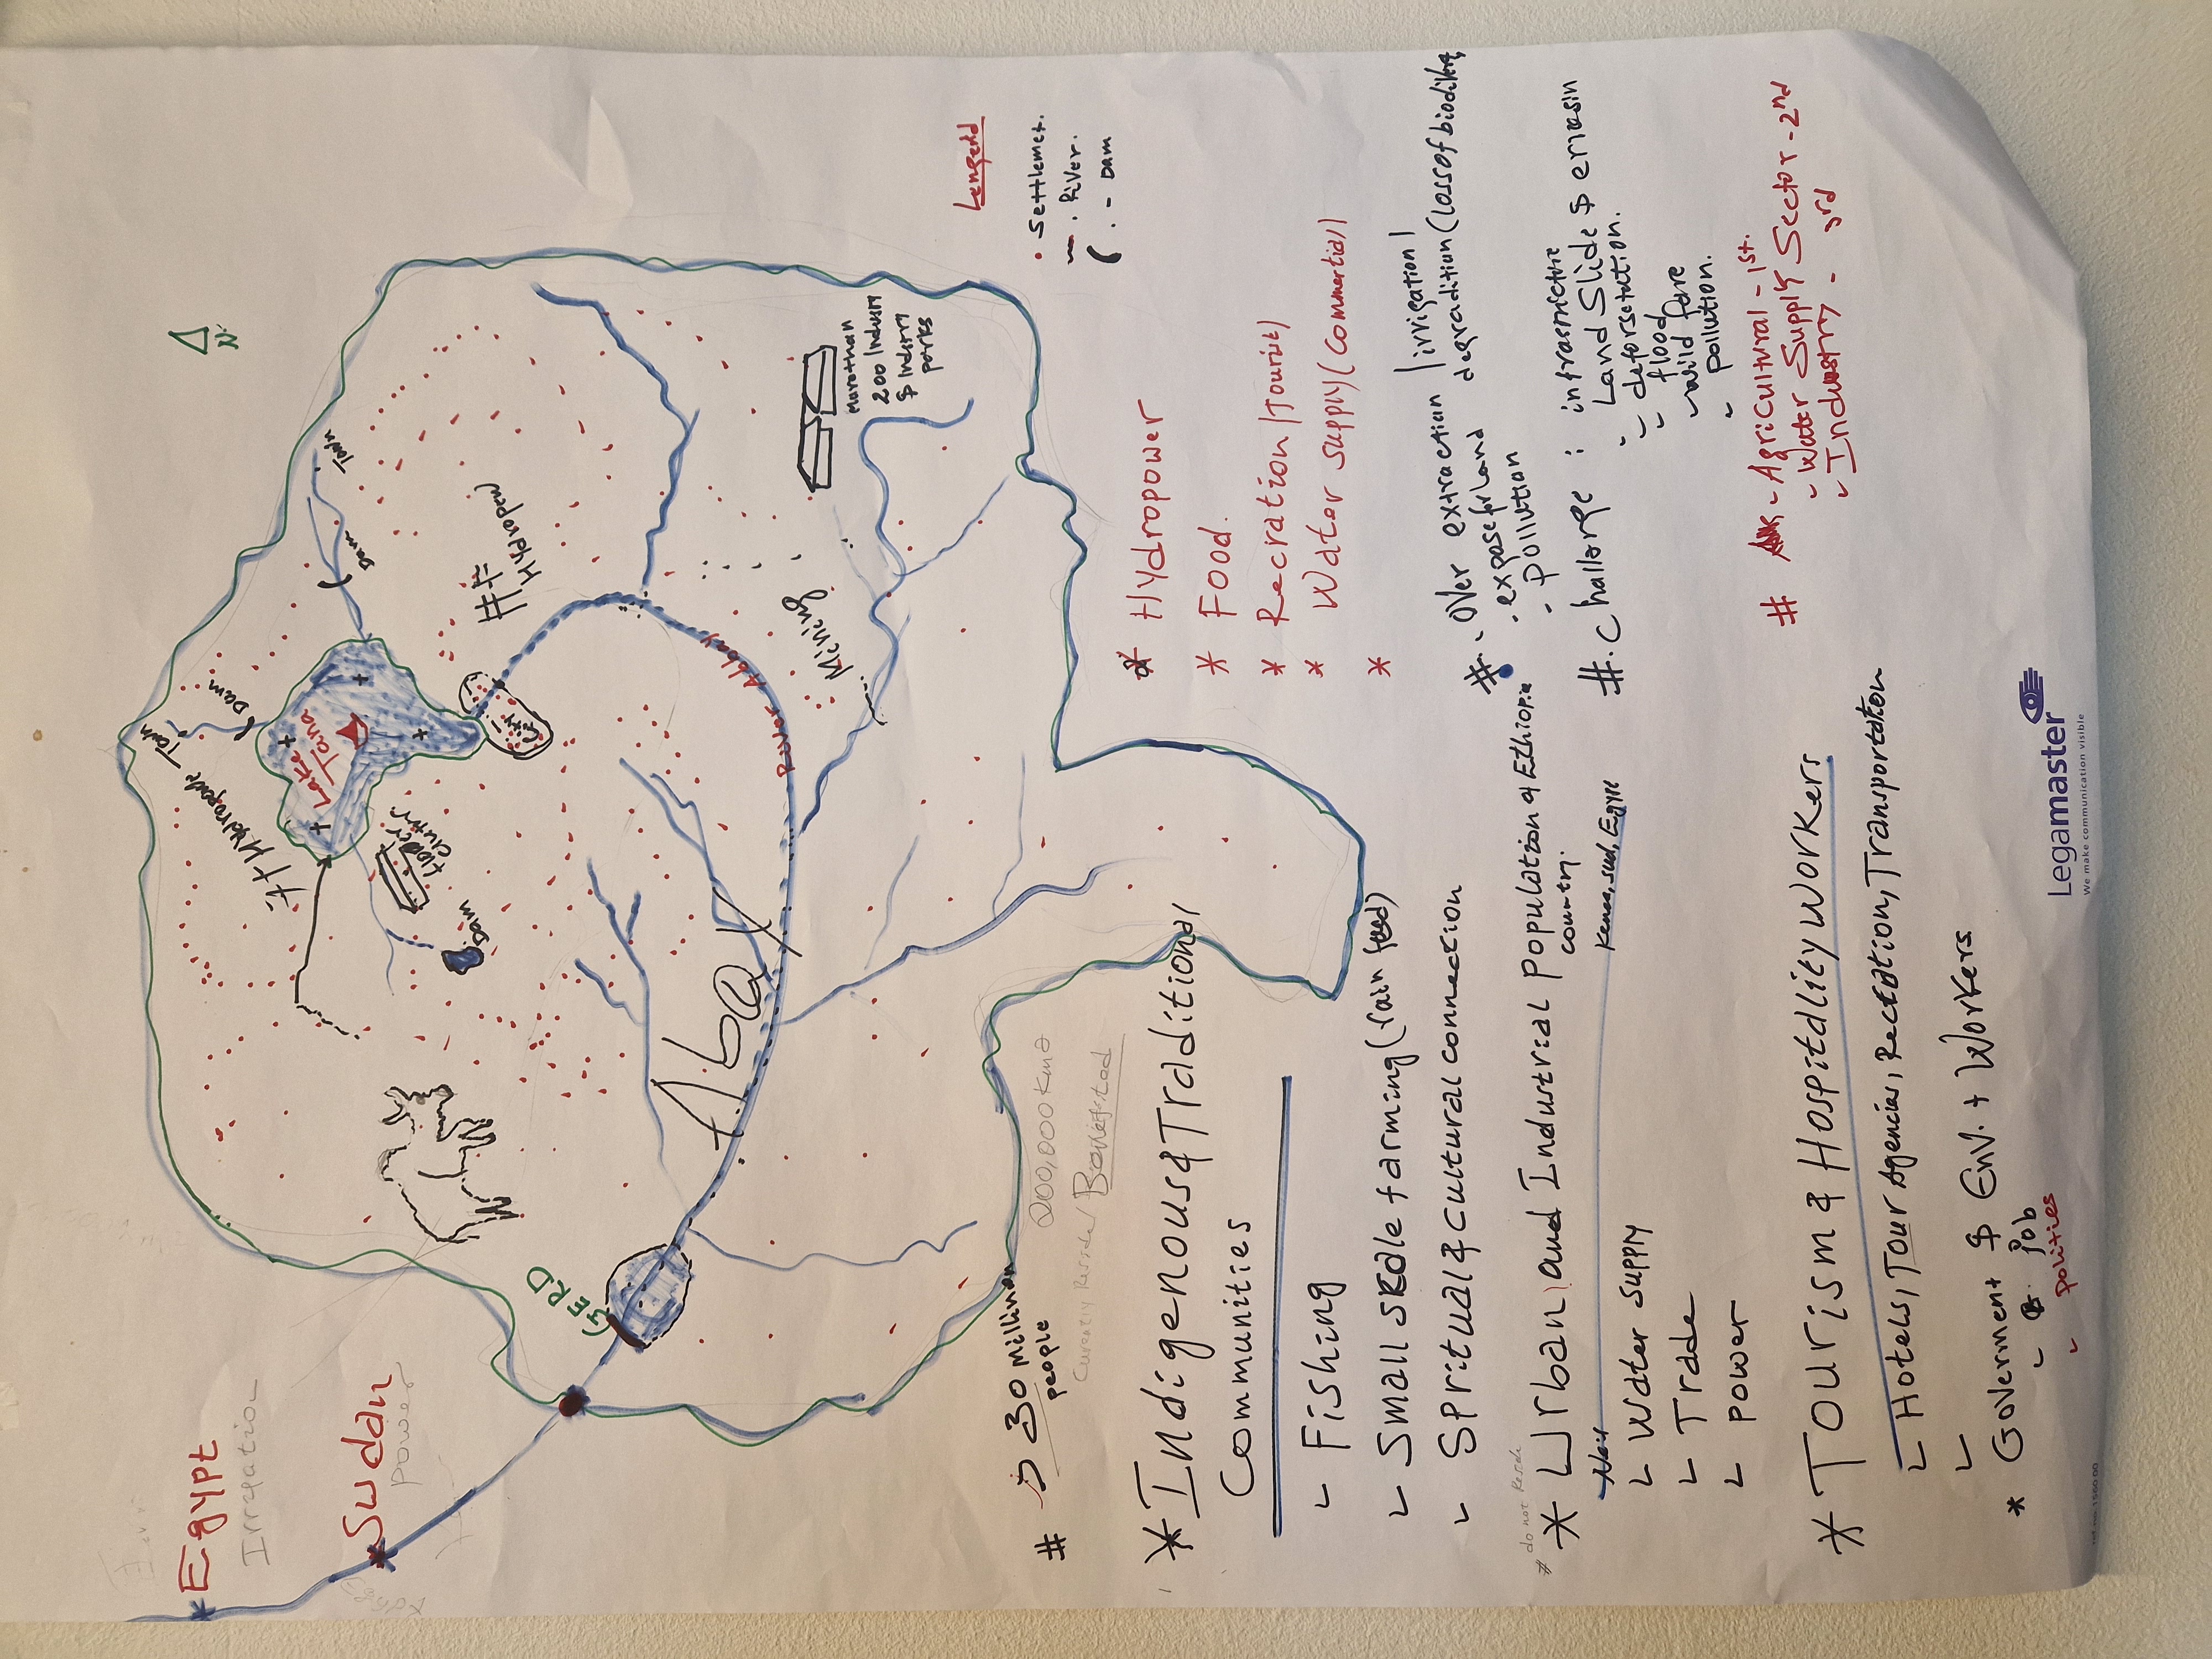 N
* Egypt
Irrigation
* Sudan
Power
GERD
Town
Dam
Lake
Tana
Town
Dam
# Hydropower
City
Dam
# Hydropower
River Abbay
Abay
Mining
more than
200 Industry
$ Industry
parks
Lengend
• Settlemet.
~ . River.
( . - Dam
# > 30 Million
people
200,000 km2
Currently Reside/ Benefited
* Indigenous & Traditional
Communities
- Fishing
- Small scale farming (rain feed)
- Spritual & cultural connection
# do not Reside
* Urban and Industrial Population of Ethiopia
country.
Kenea, Sud, Egypt
- Water supply
- Trade
- power
* Tourism & Hospitality Workers
- Hotels, Tour Agencies, Recreation, Transportation
-
* Goverment $ Env. + Workers
- Job
- polities
* Hydropower
* Food.
* Recration/Tourist/
* Water supply (Commertial)
*
# . Over extraction /irrigation/
. expose for land degradition (loss of biodiversity
- pollution
# . Challange : infrastricture
- Land Slide $ errosin
- deforsetation.
- flood
- wild fare
- pollution.
# - Agricultural - 1st.
- Water Supply Sector - 2nd
- Industry - 3rd
Legamaster
We make communication visible